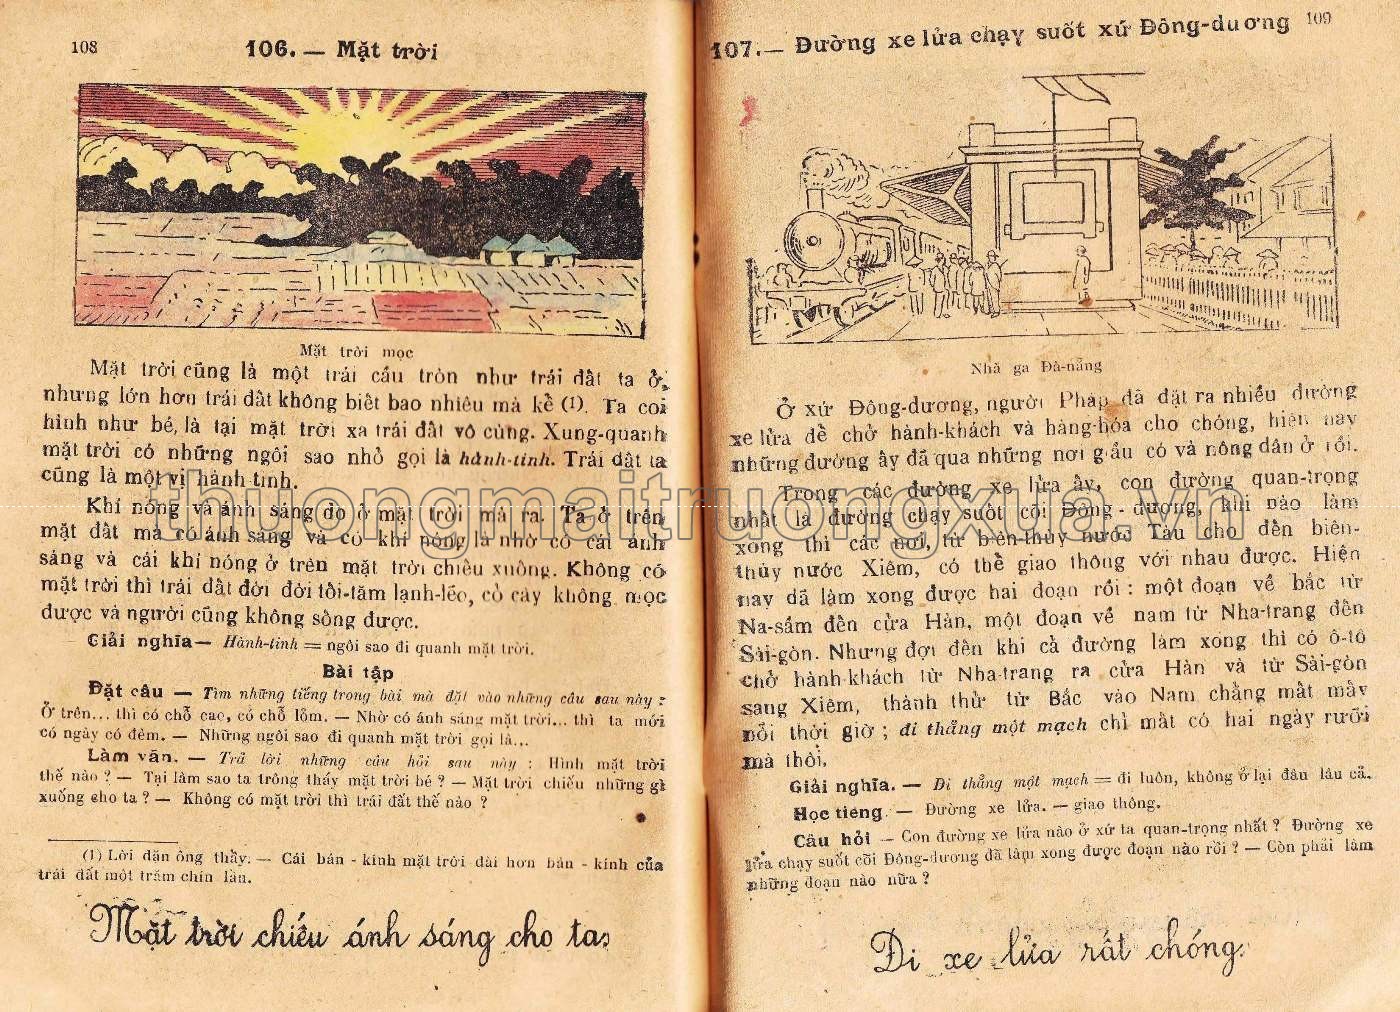 108
106. — Mặt trời
Mặt trời mọc
Mặt trời cũng là một trái cầu tròn như trái đất ta ở,
nhưng lớn hơn trái đất không biết bao nhiêu mà kể (1). Ta coi
hình như bé, là tại mặt trời xa trái đất vô cùng. Xung-quanh
mặt trời có những ngôi sao nhỏ gọi là hành-tinh. Trái đất ta
cũng là một vị hành-tinh.
Khí nóng và ánh sáng do ở mặt trời mà ra. Ta ở trên
mặt đất mà có ánh sáng và có khí nóng là nhờ có cái ánh
sáng và cái khí nóng ở trên mặt trời chiếu xuống. Không có
mặt trời thì trái đất đời đời tối-tăm lạnh-lẽo, cỏ cây không mọc
được và người cũng không sống được.
Giải nghĩa — Hành-tinh = ngôi sao đi quanh mặt trời.
Bài tập
Đặt câu — Tìm những tiếng trong bài mà đặt vào những câu sau này :
Ở trên... thì có chỗ cao, có chỗ lỏm. — Nhờ có ánh sáng mặt trời... thì ta mới
có ngày có đêm. — Những ngôi sao đi quanh mặt trời gọi là...
Làm văn. — Trả lời những câu hỏi sau này : Hình mặt trời
thế nào ? — Tại làm sao ta trông thấy mặt trời bé ? — Mặt trời chiếu những gì
xuống cho ta ? — Không có mặt trời thì trái đất thế nào ?
(1) Lời dặn ông thầy. — Cái bán - kính mặt trời dài hơn bán - kính của
trái đất một trăm chín lần.
Mặt trời chiếu ánh sáng cho ta.
109
107. — Đường xe lửa chạy suốt xứ Đông-dương
Nhà ga Đà-nẵng
Ở xứ Đông-dương, người Pháp đã đặt ra nhiều đường
xe lửa để chở hành-khách và hàng-hóa cho chóng, hiện nay
những đường ấy đã qua những nơi giầu có và nông dân ở rồi.
Trong các đường xe lửa ấy, con đường quan-trọng
nhất là đường chạy suốt cõi Đông - dương, khi nào làm
xong thì các nơi, từ biên-thùy nước Tàu cho đến biên-
thùy nước Xiêm, có thể giao thông với nhau được. Hiện
nay đã làm xong được hai đoạn rồi : một đoạn về bắc từ
Na-sầm đến cửa Hàn, một đoạn về nam từ Nha-trang đến
Sài-gòn. Nhưng đợi đến khi cả đường làm xong thì có ô-tô
chở hành-khách từ Nha-trang ra cửa Hàn và từ Sài-gòn
sang Xiêm, thành thử từ Bắc vào Nam chẳng mất mấy
nỗi thời giờ ; đi thẳng một mạch chỉ mất có hai ngày rưỡi
mà thôi.
Giải nghĩa. — Đi thẳng một mạch = đi luôn, không ở lại đâu lâu cả.
Học tiếng. — Đường xe lửa. — giao thông.
Câu hỏi — Con đường xe lửa nào ở xứ ta quan-trọng nhất ? Đường xe
lửa chạy suốt cõi Đông-dương đã làm xong được đoạn nào rồi ? — Còn phải làm
những đoạn nào nữa ?
Đi xe lửa rất chóng.
thuongmaitruongxua.vn